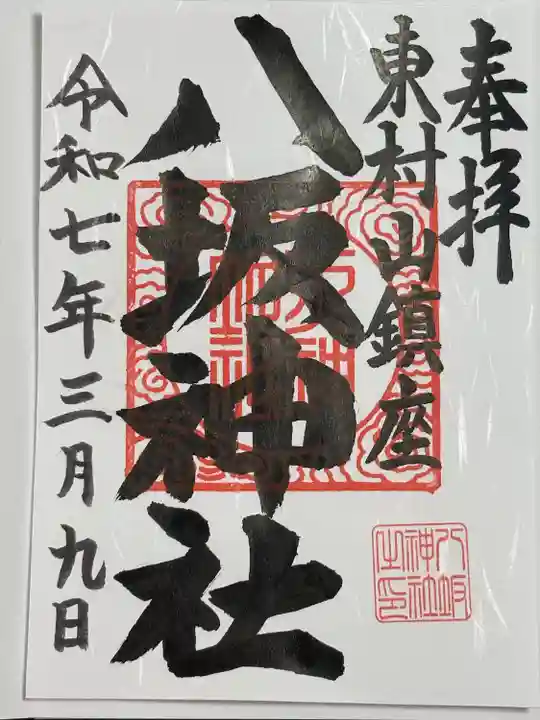 奉拝
東村山鎮座
八坂神社
令和七年三月九日
八坂
神社
之印